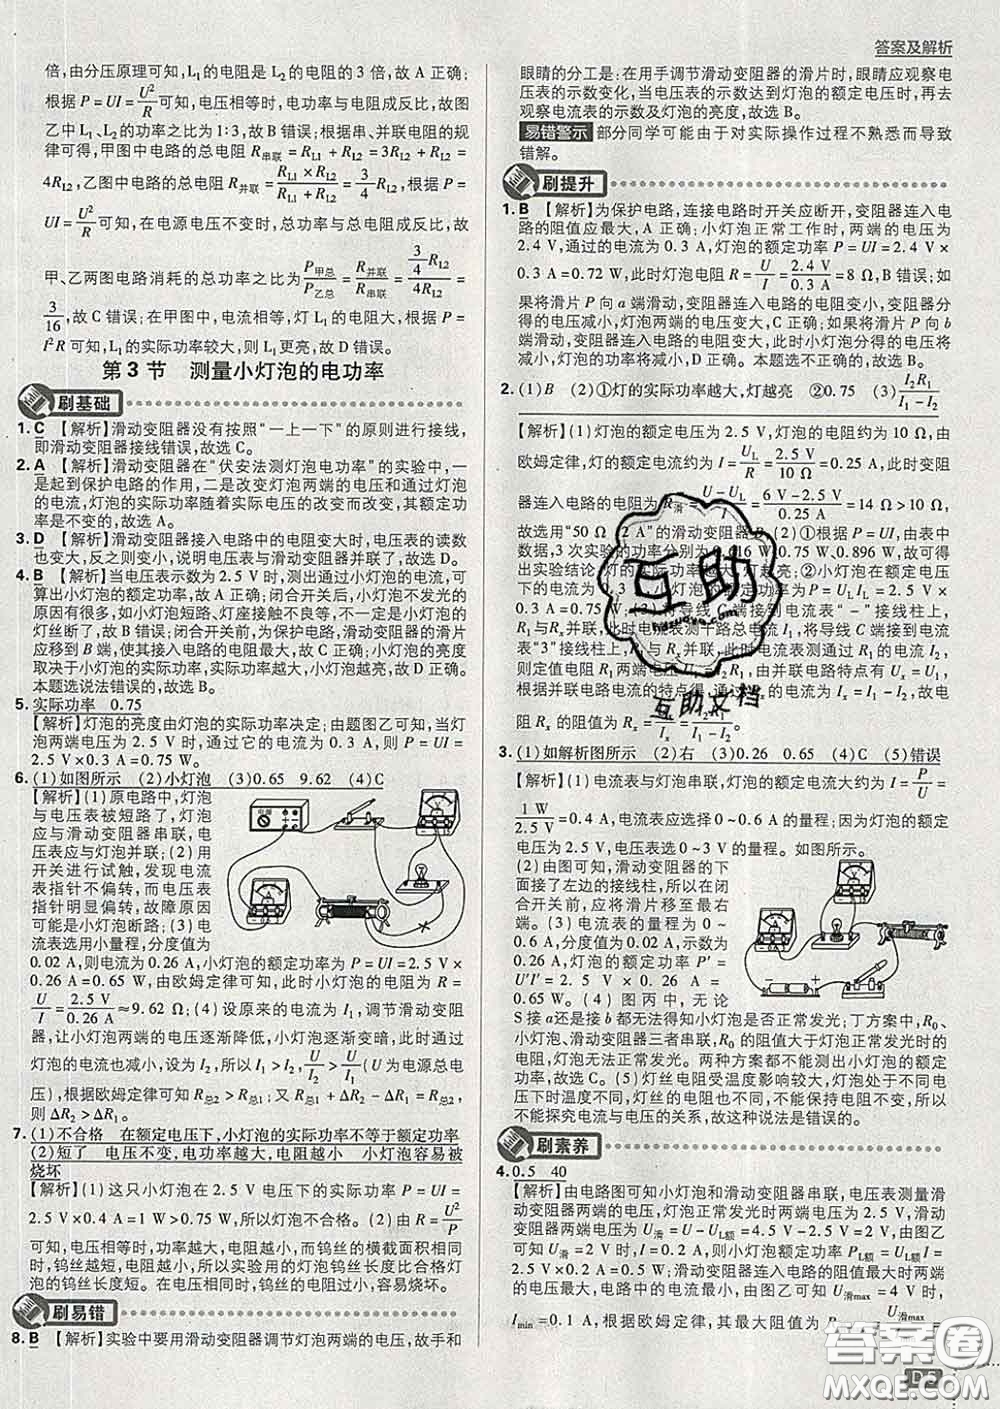 答案及解析
由分压原理可知,L₁的电阻是L₂的电阻的3倍,故A正确;
根据P=UI=U²/R可知,电压相等时,电功率与电阻成反比,故图
乙中L₁、L₂的功率之比为1:3,故B错误;根据串、并联电阻的规
律可得,甲图中电路的总电阻R串联=R_L1+R_L2=3R_L2+R_L2=
4R_L2,乙图中电路的总电阻R并联=(R_L1×R_L2)/(R_L1+R_L2)=3/4 R_L2,根据P=
UI=U²/R可知,在电源电压不变时,总功率与总电阻成反比,所以
甲、乙两图电路消耗的总功率之比为P甲总/P乙总=R并联/R串联=(3/4 R_L2)/(4R_L2)=
3/16,故C错误;在甲图中,电流相等,灯L₁的电阻大,根据P=
I²R可知,L₁的实际功率较大,则L₁更亮,故D错误。
第3节 测量小灯泡的电功率
刷基础
1. C 【解析】滑动变阻器没有按照“一上一下”的原则进行接线,
即滑动变阻器接线错误,故选C。
2. A 【解析】滑动变阻器在“伏安法测灯泡电功率”的实验中,
一是起到保护电路的作用,二是改变灯泡两端的电压和通过灯泡
的电流,灯泡的实际功率随着实际电压的改变而改变,其额定功
率是不变的,故选A。
3. D 【解析】滑动变阻器接入电路中的电阻变大时,电压表的读数
也变大,反之则变小,说明电压表与滑动变阻器并联了,故选D。
4. B 【解析】当电压表示数为2.5 V时,测出通过小灯泡的电流,可
算出小灯泡的额定功率,故A正确;闭合开关后,小灯泡不发光的
原因有很多,如小灯泡短路、灯座接触不良等,不一定是小灯泡的
灯丝断了,故B错误;闭合开关前,为保护电路,滑动变阻器的滑片
应移到B端,使其接入电路的电阻最大,故C正确;小灯泡的亮度
取决于小灯泡的实际功率,实际功率越大,小灯泡越亮,故D正确。
本题选说法错误的,故选B。
5. 实际功率 0.75
【解析】灯泡的亮度由灯泡的实际功率决定;由题图乙可知,当灯
泡两端电压为2.5 V时,通过它的电流为0.3 A,则功率P=UI=
2.5 V×0.3 A=0.75 W。
6. (1)如图所示 (2)小灯泡 (3)0.65 9.62 (4)C
【解析】(1)原电路中,灯泡
与电压表被短路了,灯泡
应与滑动变阻器串联,电
压表应与灯泡并联;(2)用
开关进行试触,发现电流
表指针不偏转,而电压表
指针明显偏转,故障原因
可能是小灯泡断路;(3)电
流表选用小量程,分度值为
0.02 A,则电流为0.26 A,小灯泡的额定功率P=UI=2.5 V×
0.26 A=0.65 W,由欧姆定律可知,此时小灯泡的电阻为R=
U/I=2.5 V/0.26 A≈9.62 Ω;(4)设原来的电流为I₁,调节滑动变阻
器,让小灯泡两端的电压逐渐降低,小灯泡逐渐变暗,电路中通过
灯泡的电流也减小,设为I₂,所以I₂<I₁,则U/I₂>U/I₁(U为电源电压,保
持不变),根据欧姆定律可知R总2>R总1;又R总2=ΔR₂+R,R总1=ΔR₁+R,
则ΔR₂>ΔR₁。故选C。
7. (1)不合格 在额定电压下,小灯泡的实际功率不等于额定功率
(2)短了 电压不变,电功率越大,电阻越小 小灯泡容易被
烧坏
【解析】(1)这只小灯泡在2.5 V电压下的实际功率P=UI=
2.5 V×0.4 A=1 W>0.75 W,所以灯泡不合格。(2)由R=U²/P
可知,电压相等时,功率越大,电阻越小;而钨丝的横截面积相同时,
钨丝越短,电阻越小,所以实验用的灯泡钨丝长度比合格灯
泡的钨丝长度短。在电压相同时,钨丝中的电流过大,容易烧坏。
刷易错
8. B 【解析】实验中要用滑动变阻器调节灯泡两端的电压,故手和
眼睛的分工是:在用手调节滑动变阻器的滑片时,眼睛应观察电
压表的示数变化,当电压表的示数达到灯泡的额定电压时,再去
观察电流表的示数及灯泡的亮度,故选B。
易错警示 部分同学可能由于对实际操作过程不熟悉而导致
错解。
刷提升
1. B 【解析】为保护电路,连接电路时开关应断开,变阻器连入电
路的阻值应最大,A正确;小灯泡正常工作时,两端的电压为
2.4 V,通过的电流为0.3 A,灯泡的额定功率P=UI=2.4 V
×0.3 A=0.72 W,此时灯泡电阻R=U/I=2.4 V/0.3 A=8 Ω,B错误;如
果将滑片P向a端滑动,变阻器连入电路的电阻变小,变阻器分
得的电压减小,灯泡两端的电压变大,C正确;如果将滑片P向b
端滑动,变阻器连入电路的电阻变大,电流变小,灯泡两端的电压
减小,灯泡的实际功率减小,灯泡变暗,D正确。本题选不正确的,故选B。
2. (1)B (2)①灯的实际功率越大,灯越亮 ②0.75 (3)I₂R₁/(I₁-I₂)
【解析】(1)灯泡的额定电压为2.5 V,灯泡的电阻约为10 Ω,由
欧姆定律,灯的额定电流约为I=U_L/R=2.5 V/10 Ω=0.25 A,此时变阻
器连入电路的电阻为R滑=(U-U_L)/I=(6 V-2.5 V)/0.25 A=14 Ω>10 Ω,
故选用“50 Ω 2 A”的滑动变阻器B。(2)①由P=UI,由表中
数据,3次实验的功率分别为0.016 W、0.75 W、0.896 W,故可得
出实验结论:灯的实际功率越大,灯越亮;②小灯泡在额定电压
R₁与Rₓ并联,此时电流表测干路总电流I₁,将导线C端接到电流
表“3”接线柱上,R₁与Rₓ并联,此时电流表测通过R₁的电流I₂,
则定值电阻R₁两端电压U₁=I₂R₁,由并联电路电压特点有Uₓ=U₁=I₂R₁,
根据并联电路电流的特点得,通过Rₓ的电流Iₓ=I₁-I₂,故电
阻Rₓ的阻值为Rₓ=Uₓ/Iₓ=I₂R₁/(I₁-I₂)。
3. (1)如解析图所示 (2)右 (3)0.26 0.65 (4)C (5)错误
【解析】(1)电流表与灯泡串联,灯泡的额定电流大约为I=P/U=
1 W/2.5 V=0.4 A,电流表应选择0~0.6 A的量程;因为灯泡的额定
电压为2.5 V,电压表选0~3 V的量程。如图所示。
(2)由图可知,滑动变阻器的下
面接了左边的接线柱,所以在闭
合开关前,应将滑片移至最右
端。(3)电流表的量程为0~
0.6 A,分度值为0.02 A,示数为
0.26 A,小灯泡的额定功率P′=
U′I′=2.5 V×0.26 A=
0.65 W。(4)图丙中,无论
S接a还是接b都无法得知小灯泡是否正常发光;丁方案中,R₀、
小灯泡、滑动变阻器三者串联,R₀的阻值大于灯泡正常发光时的
电阻,灯泡无法正常发光。两种方案都不能测出小灯泡的额定功
率,故选C。(5)灯丝电阻受温度影响较大,灯泡处于不同电
压下时温度不同,导致灯泡电阻不同,不能控制电阻不变,所以
不能探究电流与电压的关系,故这种说法是错误的。
刷素养
4. 0.5 40
【解析】由电路图可知小灯泡和滑动变阻器串联,电压表测量滑
动变阻器两端的电压,灯泡正常发光时两端电压为2.5 V,滑动
变阻器两端电压为U滑=U-U_L额=4.5 V-2.5 V=2 V,由图乙
可知U滑=2 V时,I=0.2 A,则小灯泡额定功率P_L额=U_L额I=
2.5 V×0.2 A=0.5 W;当滑动变阻器的滑片移至阻值最大时,
电压表示数最大,电路中的电流最小,由图乙可知U滑max=4 V时,
I_min=0.1 A,根据欧姆定律可得,其最大阻值为R_max=U滑max
D5
互助
huzuoyе.com
互助文档
答案圈
MXQE.COM